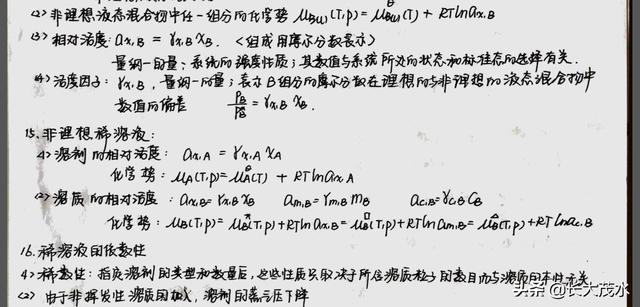 (2) 非理想液态混合物中任一组分的化学势 μB(l)(T,p) = μ⊖B(l)(T) + RTln ax,B
(3) 相对活度: ax,B = γx,B xB. <组成用摩尔分数表示>
量纲一的量; 系统的强度性质; 其数值与系统所处的状态和标准态的选择有关.
(4) 活度因子: γx,B, 量纲一的量; 表示B组分的摩尔分数在理想的与非理想的液态混合物中
数值的偏差 pB/p*B = γx,B xB.
15. 非理想稀溶液:
(1) 溶剂的相对活度: ax,A = γx,A xA
化学势: μA(T,p) = μ⊖A(T) + RTln ax,A
(2) 溶质的相对活度: ax,B = γx,B xB am,B = γm,B mB ac,B = γc,B cB
化学势: μB(T,p) = μB(T,p) + RTln ax,B = μ□B(T,p) + RTln am,B = μ△B(T,p) + RTln ac,B
16. 稀溶液的依数性
(1) 依数性: 指定溶剂的类型和数量后, 这些性质只取决于所含溶质粒子的数目而与溶质的本性无关
(2) 由于非挥发性溶质的加入, 溶剂的蒸气压下降
头条 @长大茂水